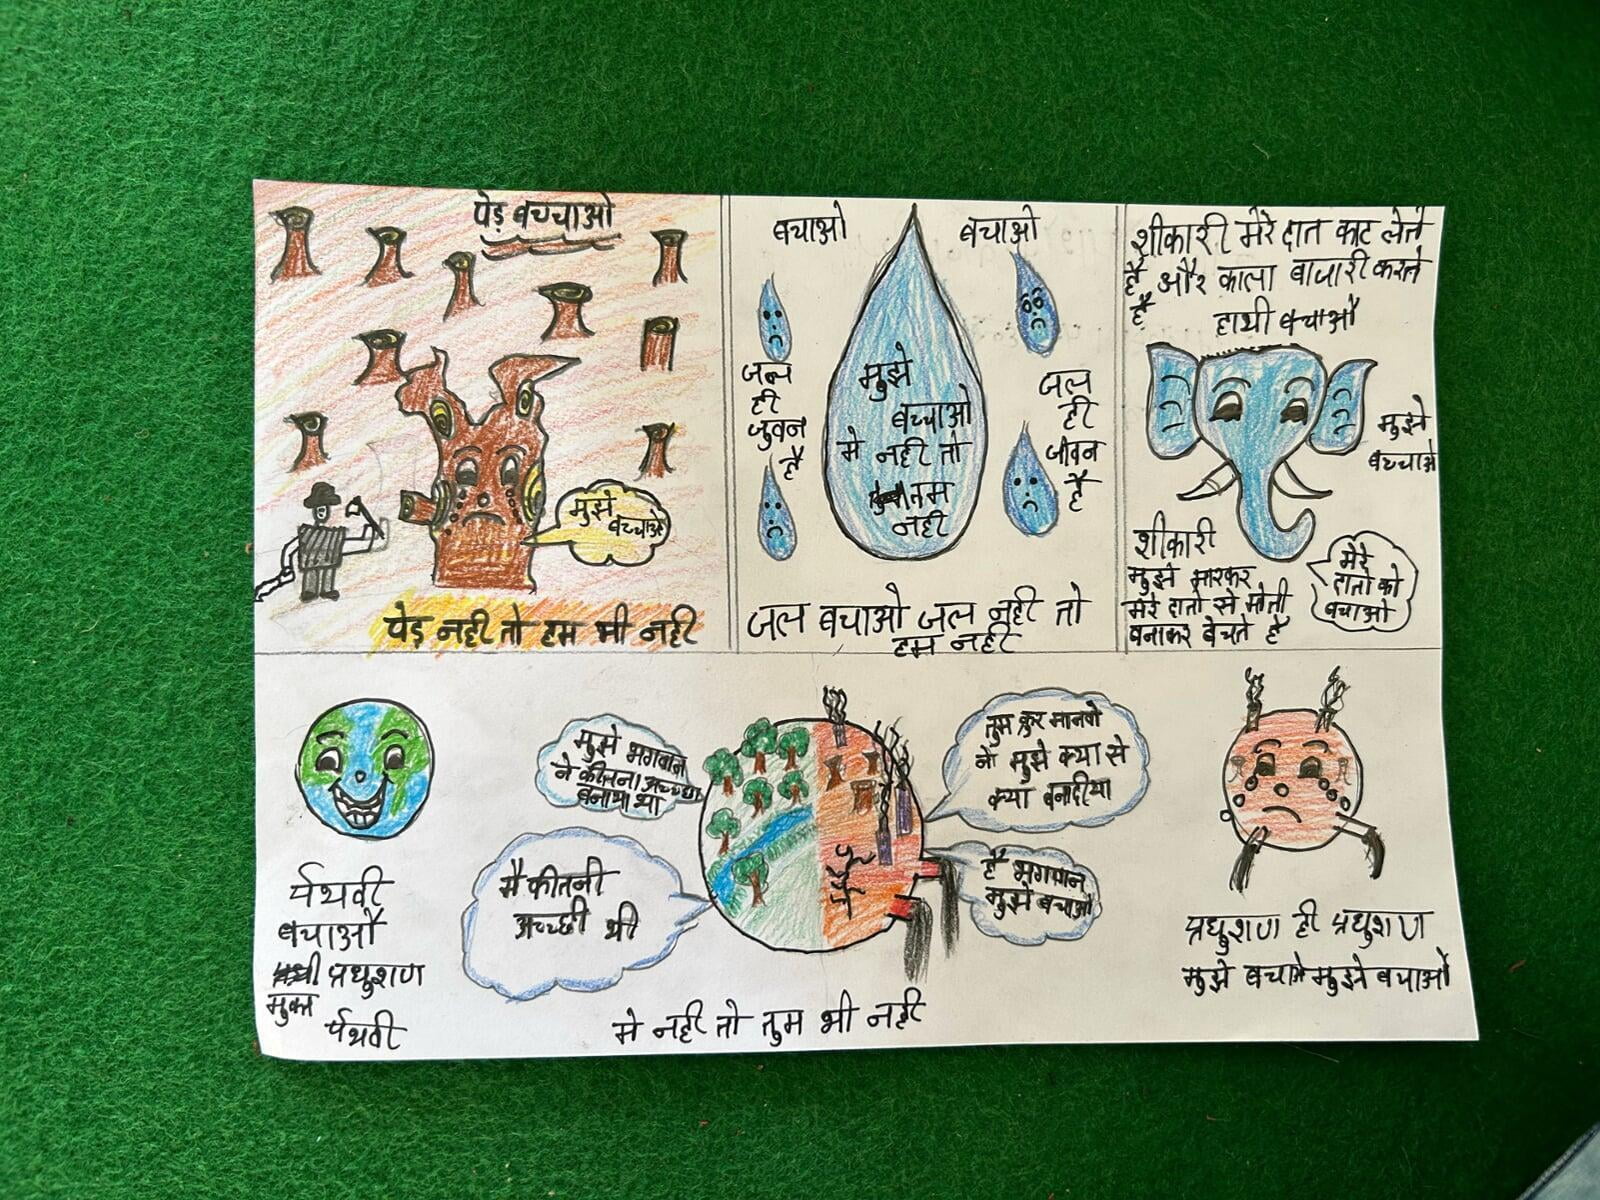 पेड़ बच्चाओ
मुझे
बच्चाओ
पेड़ नही तो हम भी नही
बचाओ
बचाओ
जल
ही
जुवन
है
मुझे
बच्चाओ
मे नही तो
तुम
नही
जल
ही
जीवन
है
जल बचाओ जल नही तो
हम नही
शीकारी मेरे दात काट लेते
है और काला बाजारी करते
है
हाथी बचाओ
मुझे
बच्चाओ
शीकारी
मुझे मारकर
मेरे दातो से मोती
बनाकर बेचते है
मेरे
दातो को
बचाओ
र्पथवी
बचाओ
प्रधुशण
मुक्त
र्पथवी
मुझे भगवान
ने कीतना अच्च्छा
बनाया था
मै कीतनी
अच्च्छी थी
तुम क्रुर मानवो
ने मुझे क्या से
क्या बनादीया
है भगवान
मुझे बचाओ
मे नही तो तुम भी नही
प्रधुशण ही प्रधुशण
मुझे बचाओ मुझे बचाओ